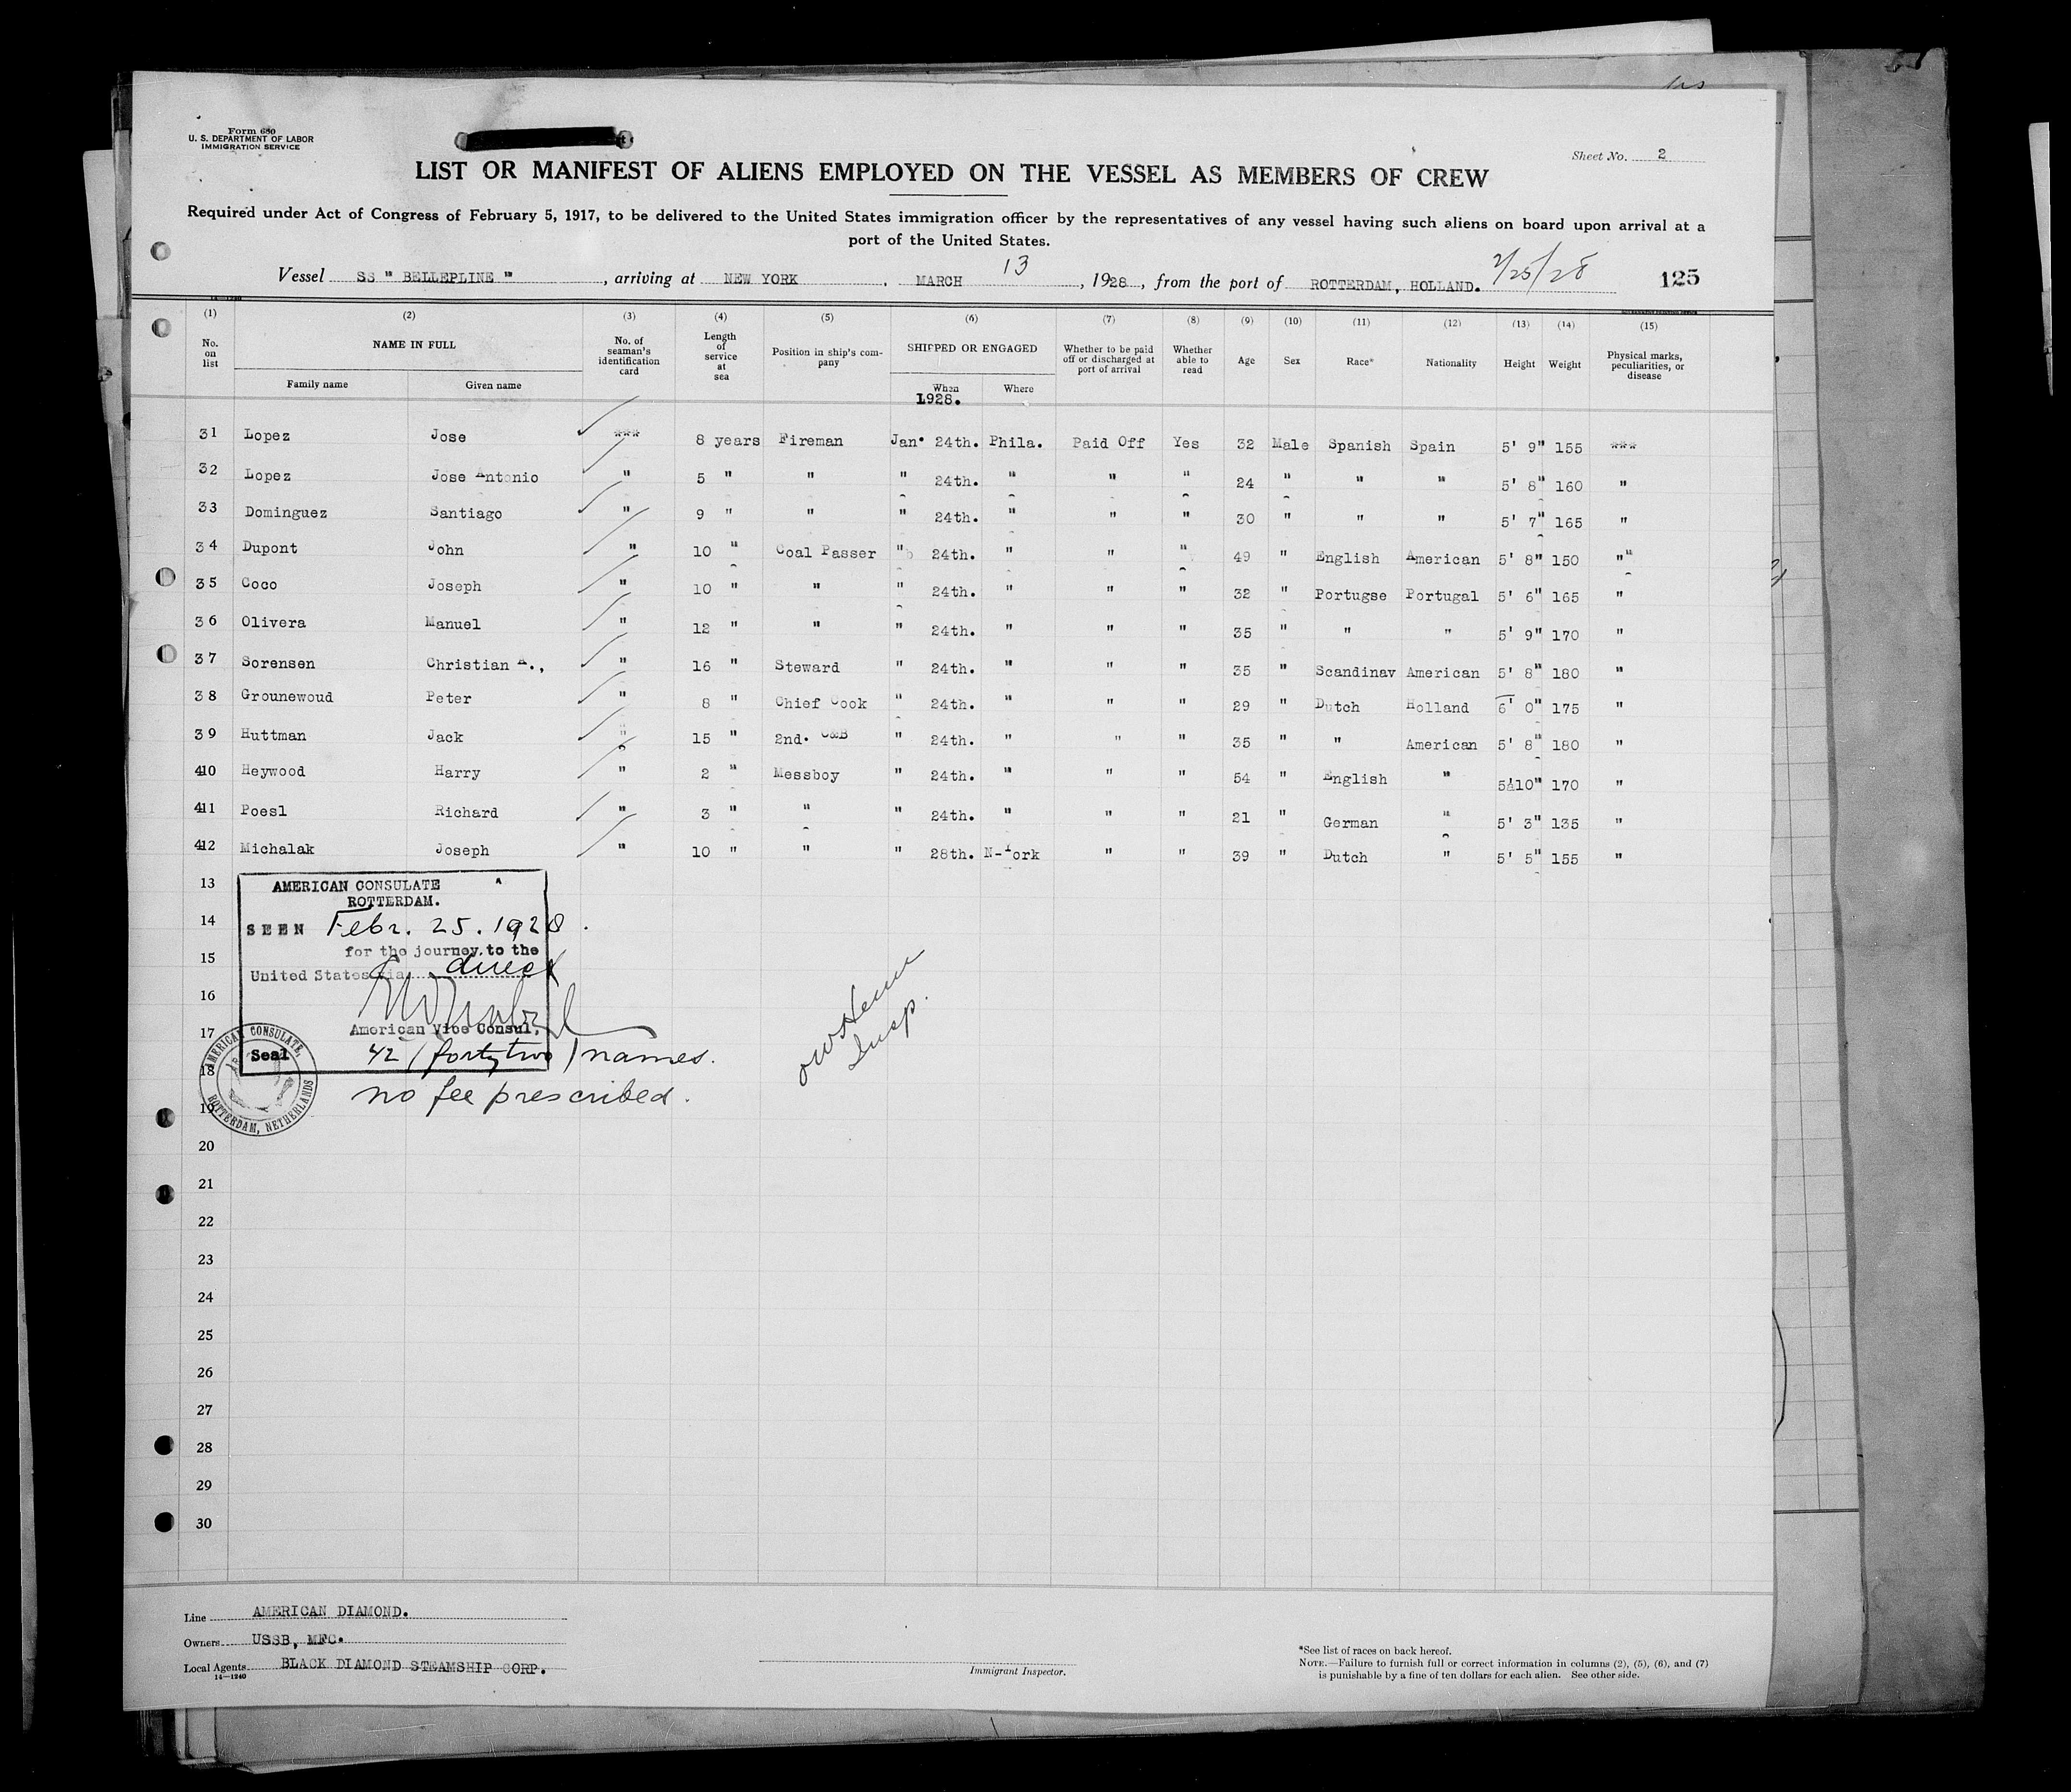 Form 680
U. S. DEPARTMENT OF LABOR
IMMIGRATION SERVICE
Sheet No. 2
LIST OR MANIFEST OF ALIENS EMPLOYED ON THE VESSEL AS MEMBERS OF CREW
Required under Act of Congress of February 5, 1917, to be delivered to the United States immigration officer by the representatives of any vessel having such aliens on board upon arrival at a
port of the United States.
Vessel SS " BELLEPLINE ", arriving at NEW YORK, MARCH 13, 1928, from the port of ROTTERDAM, HOLLAND. 2/25/28 125
(1) (2) (3) (4) (5) (6) (7) (8) (9) (10) (11) (12) (13) (14) (15)
No. on list NAME IN FULL Family name Given name No. of seaman's identification card Length of service at sea Position in ship's company SHIPPED OR ENGAGED When Where Whether to be paid off or discharged at port of arrival Whether able to read Age Sex Race* Nationality Height Weight Physical marks, peculiarities, or disease
1928.
31 Lopez Jose *** 8 years Fireman Jan. 24th. Phila. Paid Off Yes 32 Male Spanish Spain 5' 9" 155 ***
32 Lopez Jose Antonio " 5 " " " 24th. " " " 24 " " " 5' 8" 160 "
33 Dominguez Santiago " 9 " " " 24th. " " " 30 " " " 5' 7" 165 "
34 Dupont John " 10 " Coal Passer " 24th. " " " 49 " English American 5' 8" 150 "
35 Coco Joseph " 10 " " " 24th. " " " 32 " Portugse Portugal 5' 6" 165 "
36 Olivera Manuel " 12 " " " 24th. " " " 35 " " " 5' 9" 170 "
37 Sorensen Christian A., " 16 " Steward " 24th. " " " 35 " Scandinav American 5' 8" 180 "
38 Grounewoud Peter " 8 " Chief Cook " 24th. " " " 29 " Dutch Holland 6' 0" 175 "
39 Huttman Jack " 15 " 2nd. C&B " 24th. " " " 35 " " American 5' 8" 180 "
410 Heywood Harry " 2 " Messboy " 24th. " " " 54 " English " 5'10" 170 "
411 Poesl Richard " 3 " " " 24th. " " " 21 " German " 5' 3" 135 "
412 Michalak Joseph " 10 " " " 28th. N-York " " 39 " Dutch " 5' 5" 155 "
13
14
15
16
17
18
19
20
21
22
23
24
25
26
27
28
29
30
AMERICAN CONSULATE
ROTTERDAM.
SEEN Febr. 25. 1928.
for the journey to the
United States via direct
American Vice Consul,
Seal 42 (forty two) names.
no fee prescribed.
AMERICAN CONSULATE,
ROTTERDAM, NETHERLANDS
Insp.
Line AMERICAN DIAMOND.
Owners USSB, MFC.
Local Agents BLACK DIAMOND STEAMSHIP CORP.
14—1240
Immigrant Inspector.
*See list of races on back hereof.
NOTE.—Failure to furnish full or correct information in columns (2), (5), (6), and (7)
is punishable by a fine of ten dollars for each alien. See other side.